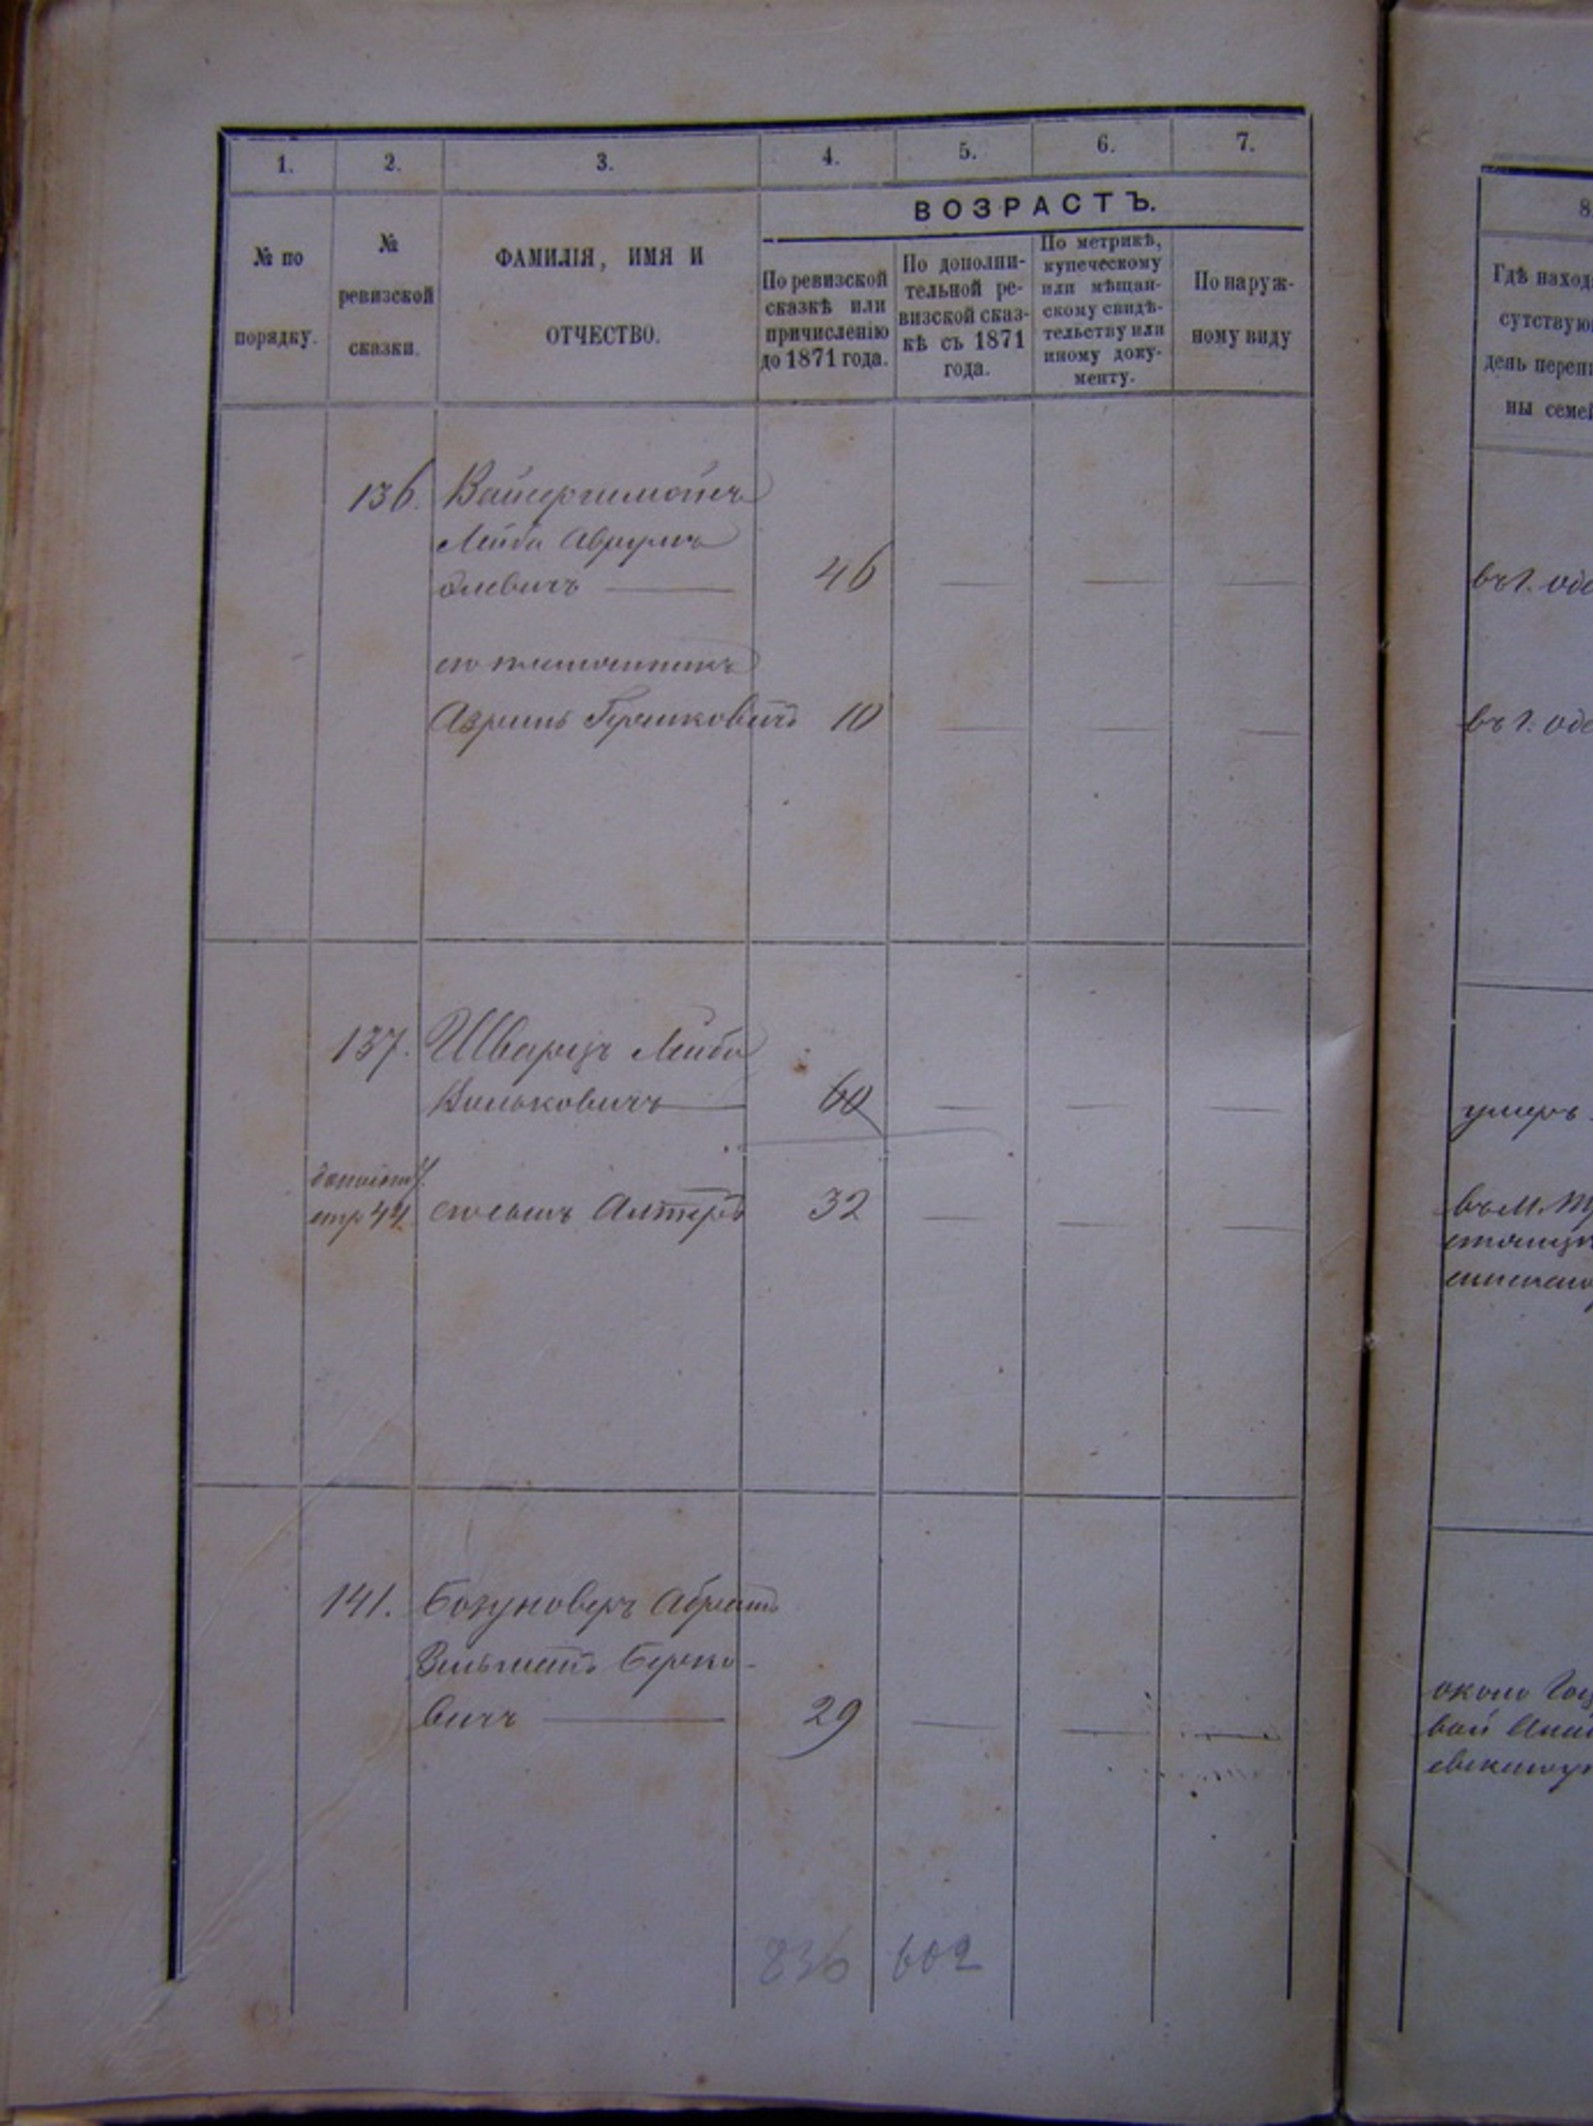 1. 2. 3. 4. 5. 6. 7.
ВОЗРАСТЪ.
№ по
порядку.
№
ревизской
сказки.
ФАМИЛІЯ, ИМЯ И
ОТЧЕСТВО.
По ревизской
сказкѣ или
причисленію
до 1871 года.
По дополни-
тельной ре-
визской сказ-
кѣ съ 1871
года.
По метрикѣ,
купеческому
или мѣщан-
скому свидѣ-
тельству или
иному доку-
менту.
По наруж-
ному виду
136.
Лейба Аврумъ
46
его племянникъ
Аврумъ Гершковичъ 10
137. Шварцъ Лейба
Вольковичъ 60
стр 44 его сынъ Алтеръ 32
141. Абрамъ
Зельманъ Берко-
вичъ 29
836 602
8
Гдѣ наход
сутствую
день переп
ны семе
въ г. оде
въ г. оде
умеръ
въ м.
около
вой